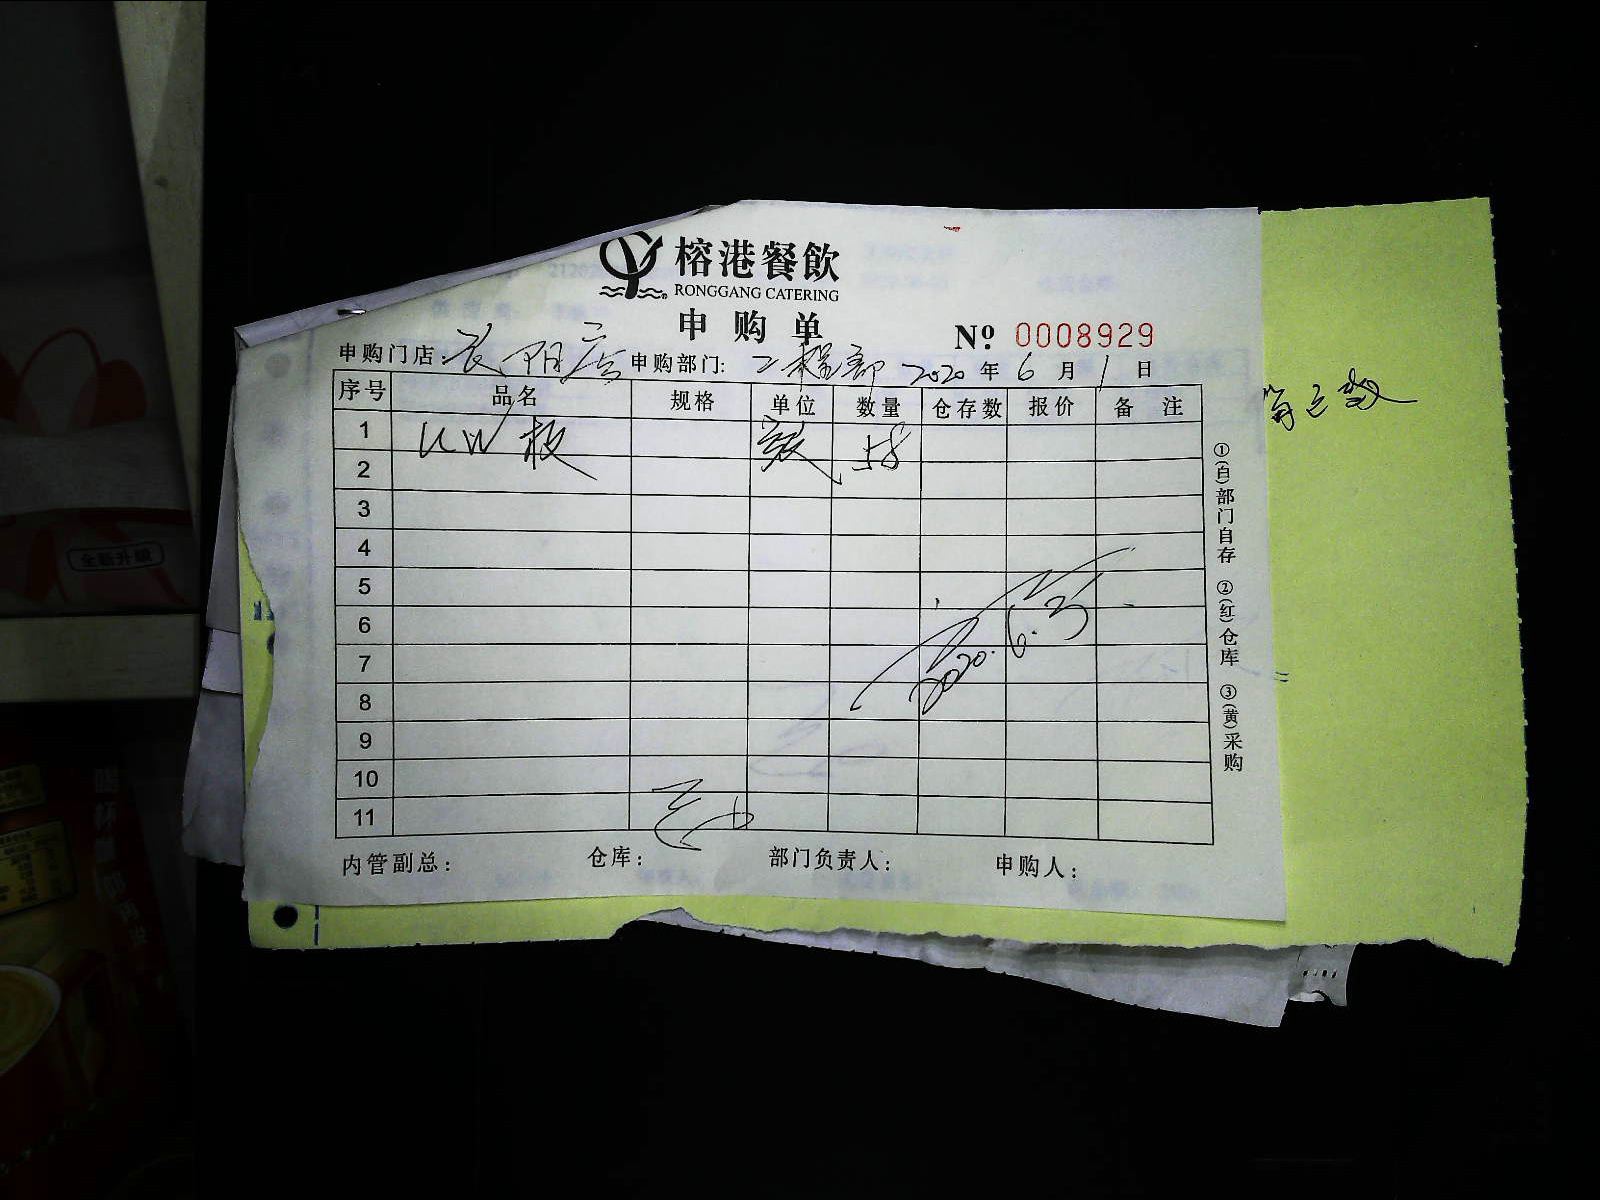 榕港餐飲
RONGGANG CATERING
申购单
№ 0008929
申购门店: 长阳店 申购部门: 工程部 2020年6月1日
序号 品名 规格 单位 数量 仓存数 报价 备注
1 KW板 58
2
3
4
5
6
7
8
9
10
11
2020.6.3
内管副总: 仓库: 部门负责人: 申购人:
①(白)部门自存 ②(红)仓库 ③(黄)采购
全新升级